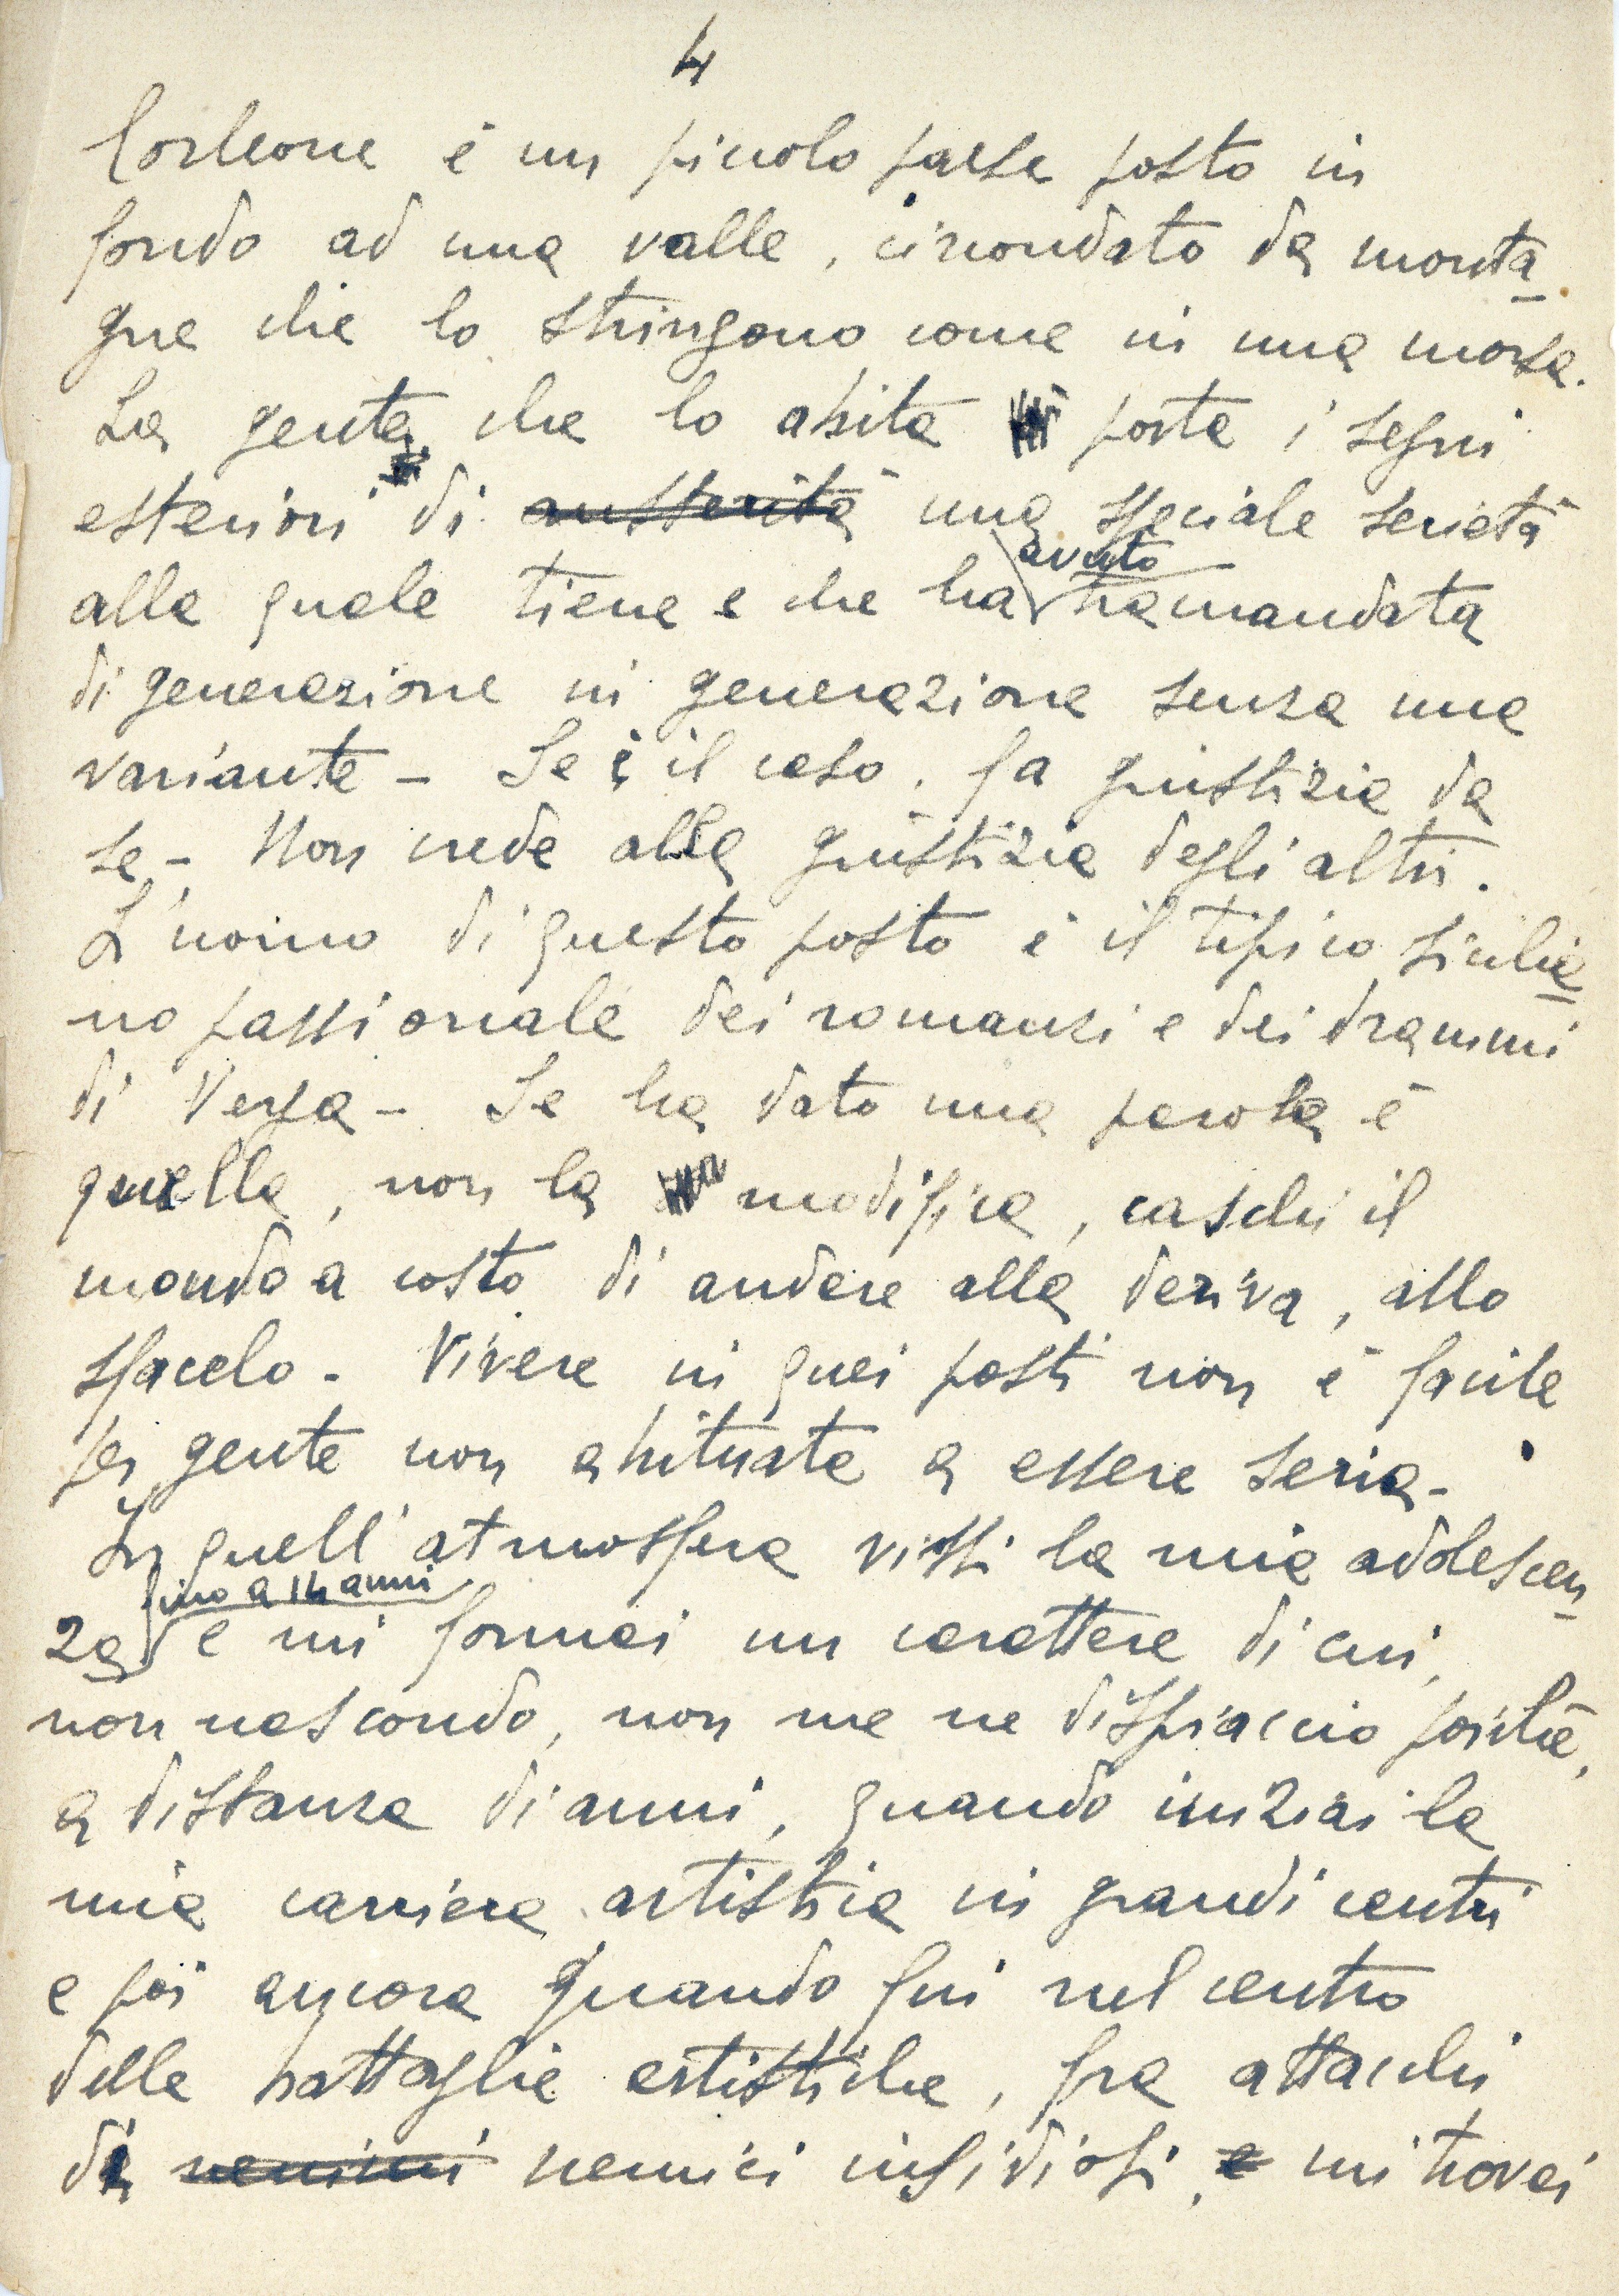 4
Corleone è un piccolo paese posto in
fondo ad una valle, circondato da monta
gne che lo stringono come in una morsa.
La gente che lo abita porta i segni
esteriori di austerità una speciale serietà
avuto
alla quale tiene e che ha tramandata
di generazione in generazione senza una
variante - Se è il caso, fa giustizia da
se - Non crede alla giustizia degli altri.
L'uomo di questo posto è il tipico sicilia
no passionale dei romanzi e dei drammi
di Verga - Se ha dato una parola è
quella, non la modifica, caschi il
mondo a costo di andare alla deriva, allo
sfacelo - Vivere in quei posti non è facile
per gente non abituata a essere seria -
In quell'atmosfera vissi la mia adolescen
fino a 14 anni
za e mi formai un carattere di cui,
non nascondo, non me ne dispiaccio poichè,
a distanza di anni, quando iniziai la
mia carriera artistica in grandi centri
e poi ancora quando fui nel centro
delle battaglie artistiche, fra attacchi
di nemimi nemici insidiosi, e mi trovai